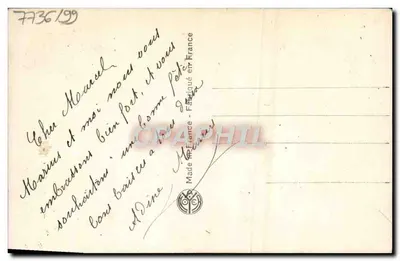 7736/99
Cher Marcel
Marius et moi nous vous
embrassons bien fort, et vous
souhaitons une bonne fête
bons baisers à tous deux
Adine Marius
Made in France - Fabriqué en France
CPAPHIL